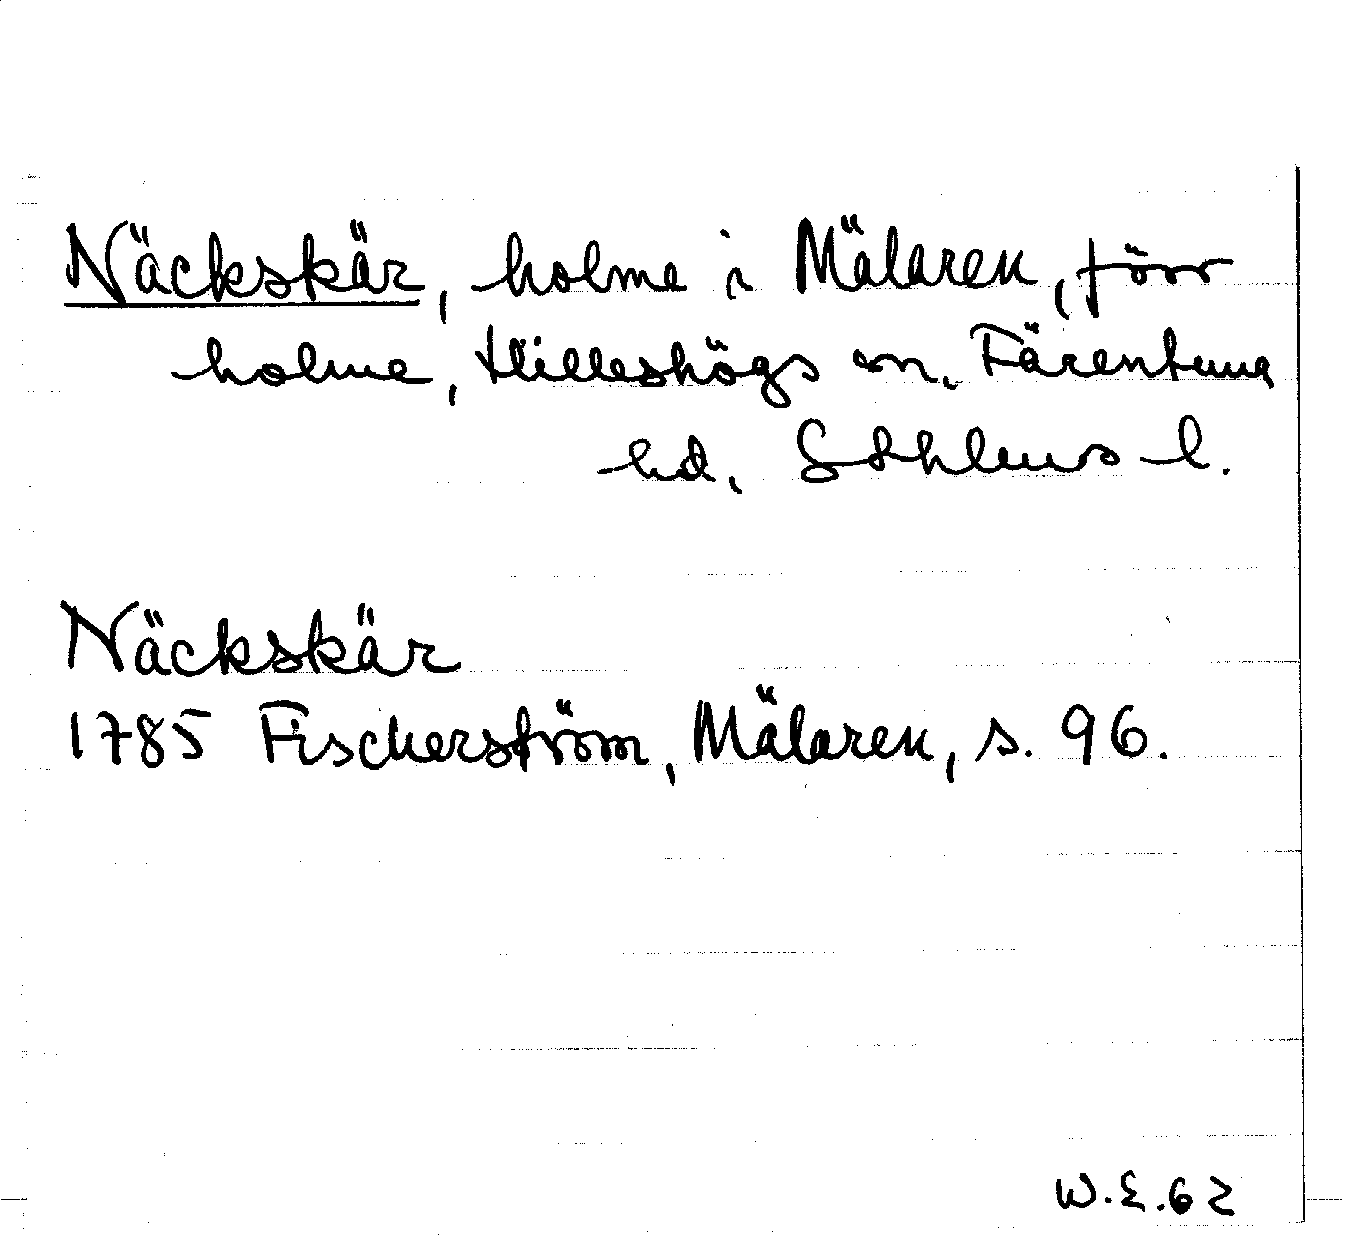 Näckskär, holme i Mälaren, förr
holme, Hilleshögs sn, Färentuna
hd, Sthlms l.
Näckskär
1785 Fischerström, Mälaren, s. 96.
W.E.62